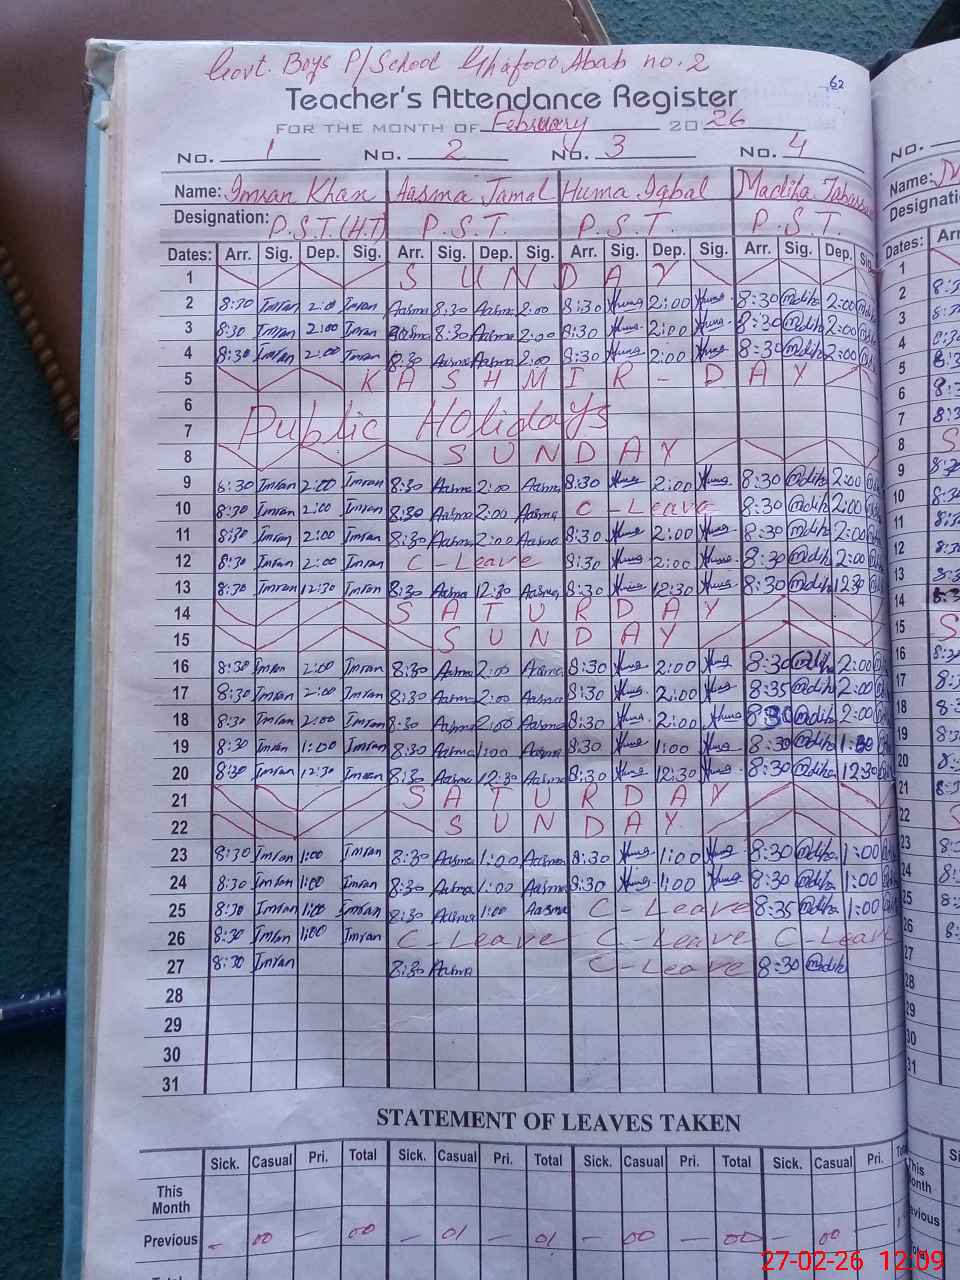 Govt. Boys P/School Ghafoor Abab no. 2
62
Teacher's Attendance Register
FOR THE MONTH OF February 2026
No. 1 No. 2 No. 3 No. 4 No.
Name: Imran Khan Aasma Jamal Huma Iqbal Madiha Name:
Designation: P.S.T.(H.T) P.S.T. P.S.T. P.S.T.
Dates: Arr. Sig. Dep. Sig. Arr. Sig. Dep. Sig. Arr. Sig. Dep. Sig. Arr. Sig. Dep. Sig. Dates:
1 SUNDAY 1
2 8:30 Imran 2:00 Imran Aasma 8:30 Aasma 2:00 8:30 Huma 2:00 Huma 8:30 Madiha 2:00 2
3 8:30 Imran 2:00 Imran Aasma 8:30 Aasma 2:00 8:30 Huma 2:00 Huma 8:30 Madiha 2:00 3
4 8:30 Imran 2:00 Imran 8:30 Aasma Aasma 2:00 8:30 Huma 2:00 Huma 8:30 Madiha 2:00 4
5 KASHMIR-DAY 5
6 6
7 Public Holidays 7
8 SUNDAY 8
9 8:30 Imran 2:00 Imran 8:30 Aasma 2:00 Aasma 8:30 Huma 2:00 Huma 8:30 Madiha 2:00 9
10 8:30 Imran 2:00 Imran 8:30 Aasma 2:00 Aasma C-Leave 8:30 Madiha 2:00 10
11 8:30 Imran 2:00 Imran 8:30 Aasma 2:00 Aasma 8:30 Huma 2:00 Huma 8:30 Madiha 2:00 11
12 8:30 Imran 2:00 Imran C-Leave 8:30 Huma 2:00 Huma 8:30 Madiha 2:00 12
13 8:30 Imran 12:30 Imran 8:30 Aasma 12:30 Aasma 8:30 Huma 12:30 Huma 8:30 Madiha 12:30 13
14 SATURDAY 14
15 SUNDAY 15
16 8:30 Imran 2:00 Imran 8:30 Aasma 2:00 Aasma 8:30 Huma 2:00 Huma 8:30 Madiha 2:00 16
17 8:30 Imran 2:00 Imran 8:30 Aasma 2:00 Aasma 8:30 Huma 2:00 Huma 8:35 Madiha 2:00 17
18 8:30 Imran 2:00 Imran 8:30 Aasma 2:00 Aasma 8:30 Huma 2:00 Huma 8:30 Madiha 2:00 18
19 8:30 Imran 1:00 Imran 8:30 Aasma 1:00 Aasma 8:30 Huma 1:00 Huma 8:30 Madiha 1:00 19
20 8:30 Imran 12:30 Imran 8:30 Aasma 12:30 Aasma 8:30 Huma 12:30 Huma 8:30 Madiha 12:30 20
21 SATURDAY 21
22 SUNDAY 22
23 8:30 Imran 1:00 Imran 8:30 Aasma 1:00 Aasma 8:30 Huma 1:00 Huma 8:30 Madiha 1:00 23
24 8:30 Imran 1:00 Imran 8:30 Aasma 1:00 Aasma 8:30 Huma 1:00 Huma 8:30 Madiha 1:00 24
25 8:30 Imran 1:00 Imran 8:30 Aasma 1:00 Aasma C-Leave 8:35 Madiha 1:00 25
26 8:30 Imran 1:00 Imran C-Leave C-Leave C-Leave 26
27 8:30 Imran 8:30 Aasma C-Leave 8:30 Madiha 27
28 28
29 29
30 30
31 31
STATEMENT OF LEAVES TAKEN
Sick. Casual Pri. Total Sick. Casual Pri. Total Sick. Casual Pri. Total Sick. Casual Pri.
This Month
Previous - 00 - 00 - 01 - 01 - 00 - 00 - 00 -
27-02-26 12:09